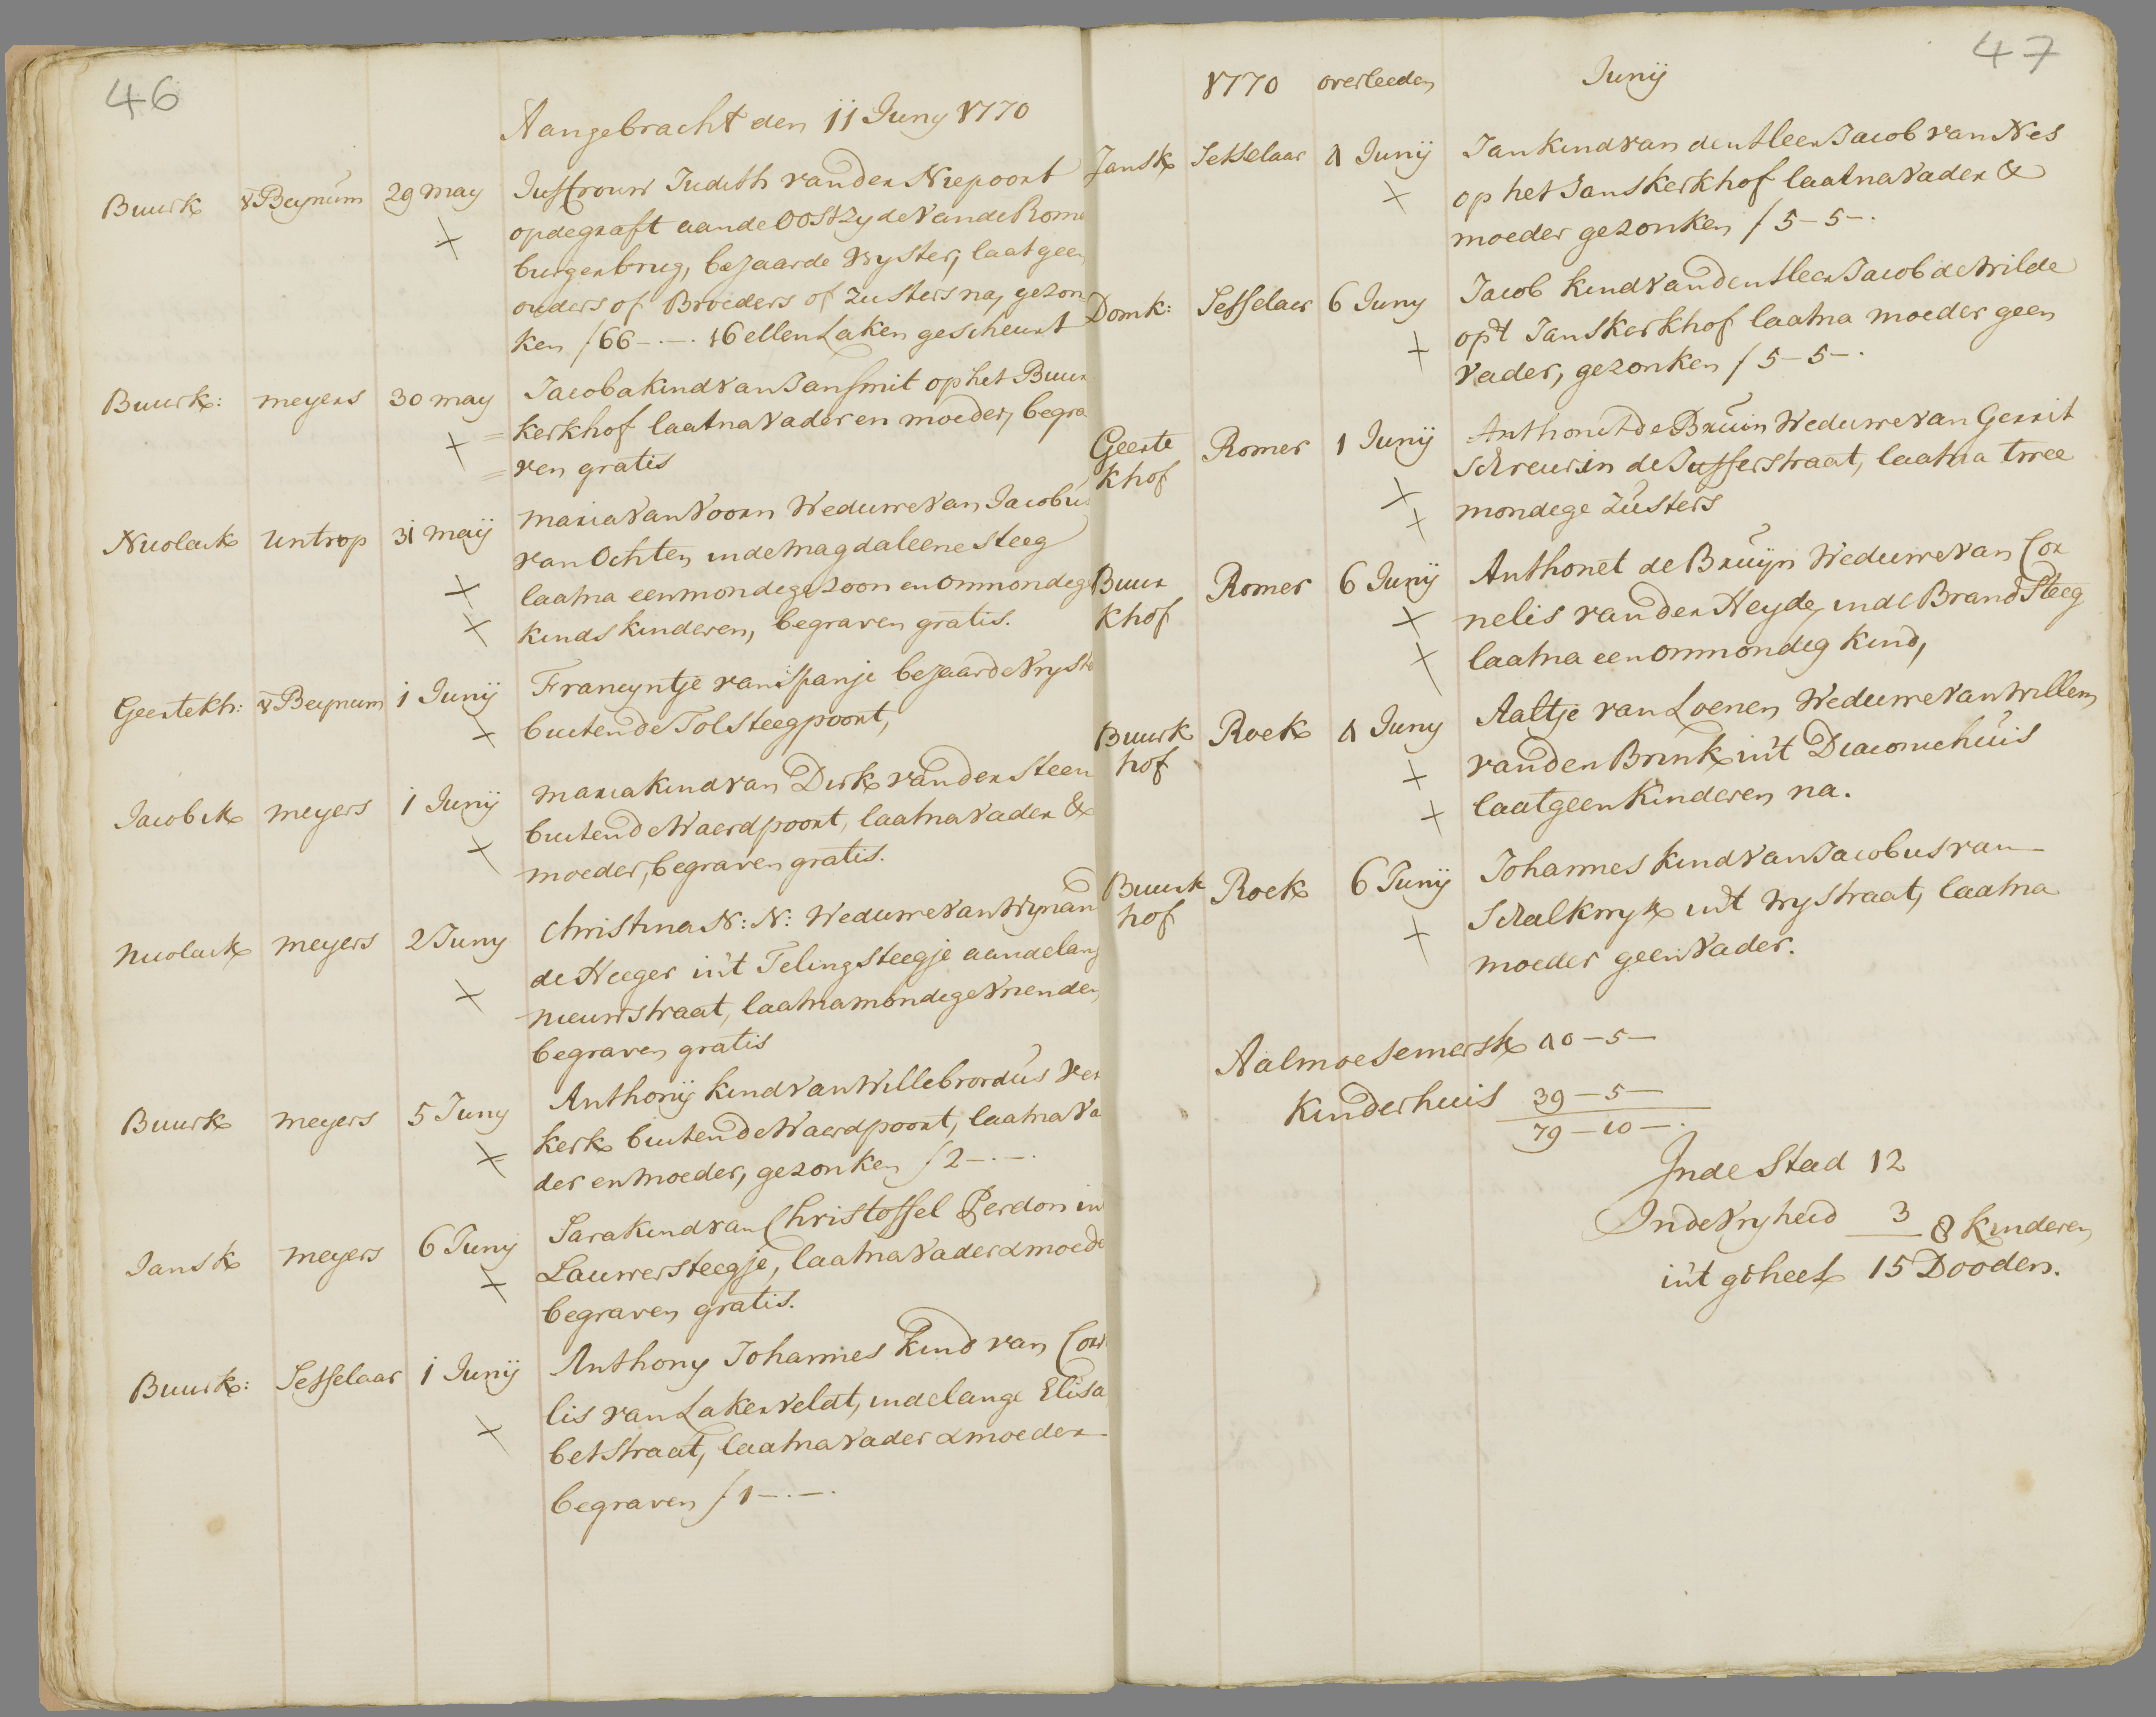 46
Aangebracht den 11 Juny 1770
Buurk v Beynum 29 may Juffrouw Judith van der Niepoort
op de graft aan de Oostzyde van de Rome
burgerbrug, bejaarde vryster, laat geen
ouders of Broeders of zusters na, gezon
ken f 66-.-. 16 ellen Laken gescheurt
Buurk: meyers 30 may Jacoba kind van Jan Smit op het Buur
kerkhof laat na vader en moeder, begra
ven gratis
Nicolaik Untrop 31 maij maria van Voorn Weduwe van Jacobus
van Ochten, in de magdaleene Steeg
laat na een mondege zoon en onmondege
kinds kinderen, begraven gratis.
Geertekh: v Beynum 1 Junij Francyntje van Spanje bejaarde vryste
buiten de Tolsteegpoort,
Jacobik meyers 1 Junij maria kind van Dirk van der Steen
buiten de Waerdpoort, laat na vader &
moeder, begraven gratis.
Nicolaik meyers 2 Juny Christina N: N: Weduwe van Wynan
de Heeger in't Teling Steegje aan de lang
nieuwstraat, laat na mondege vrienden,
begraven gratis
Buurk meyers 5 Juny Anthonij kind van Willebrordus ver
kerk buiten de Waerdpoort, laat na va
der en moeder, gezonken f 2-.-.
Jansk meyers 6 Juny Sara kind van Christoffel Perdon in
Lauwersteegje, laat na vader & moede
begraven gratis.
Buurk: Setselaar 1 Junij Anthony Johannes kind van Corn
lis van Lakerveldt, in de lange Elisa
betstraat, laat na vader & moeder
begraven f 1-.-.
47
1770 overleeden Junij
Jansk Setselaar 1 Junij Jan kind van den Heer Jacob van Nes
op het Janskerkhof laat na vader &
moeder gezonken f 5-5-.
Domk: Setselaer 6 Juny Jacob kind van den Heer Jacob de Wilde
op't Janskerkhof laat na moeder geen
vader, gezonken f 5-5-.
Geerte khof Romer 1 Junij Anthonet de Bruin Weduwe van Gerrit
Schreur in de Jufferstraat, laat na twee
mondege zusters
Buur khof Romer 6 Junij Anthonet de Bruijn Weduwe van Cor
nelis van der Heyde, in de Brand Steeg
laat na een onmondig kind,
Buurk hof Roek 1 Juny Aaltje van Loenen Weduwe van Willem
van den Brink in't Diaconiehuis
laat geen kinderen na.
Buurk hof Roek 6 Junij Johannes kind van Jacobus van
Schalkwyk in't vry straat, laat na
moeder geen vader.
Aalmoesemiersk 40-5-
Kinderhuis 39-5-
79-10-.
In de Stad 12
In de vryheid 3 8 kinderen
in't geheel 15 Dooden.